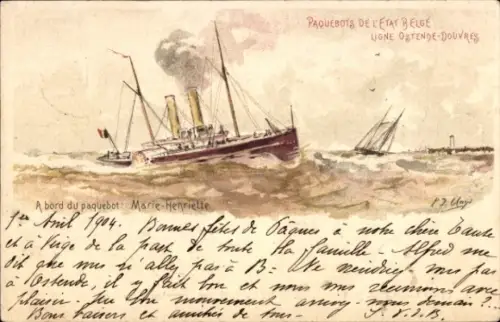 PAQUEBOTS DE L'ÉTAT BELGE
LIGNE OSTENDE-DOUVRES
A bord du paquebot: Marie-Henriette
1er Avril 1904. Bonnes fêtes de Pâques à notre chère Tante
et à de la part de toute la famille. Alfred me
dit que vous n'allez pas à B: Ne viendrez vous pas
à Ostende, il y fait bon et nous vous reverrons avec
plaisir. mouvement nous demain?
Bons baisers et amitiés de tous